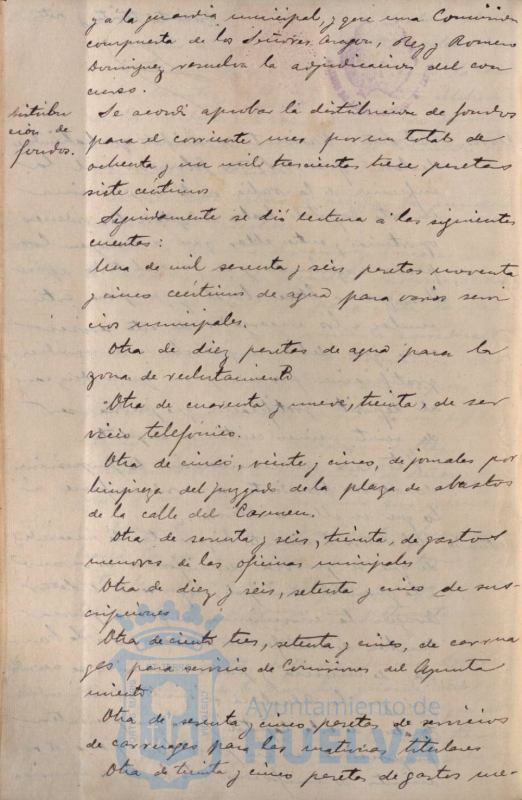 y a la guardia municipal, y que una Comisión
compuesta de los Señores Aragón, Rey y Romero
Dominguez resuelva la adjudicación del con
curso.
Distribu
ción de
fondos.
Se acordó aprobar la distribución de fondos
para el corriente mes por un total de
ochenta y un mil trescientas trece pesetas
siete centimos
Seguidamente se dió lectura á las siguientes
cuentas:
Una de mil sesenta y séis pesetas noventa
y cinco centimos de agua para varios servi
cios municipales.
Otra de diez pesetas de agua para la
zona de reclutamiento
Otra de cuarenta y nueve, treinta, de ser
vicio telefónico.
Otra de cinco, veinte y cinco, de jornales por
limpieza del juzgado de la plaza de abastos
de la calle del Carmen.
Otra de sesenta y séis, treinta, de gastos
menores de las oficinas municipales
Otra de diez y séis, setenta y cinco de sus-
cripciones
Otra de ciento tres, setenta y cinco, de carrua
ges para servicio de Comisiones del Ayunta
miento
Otra de sesenta y cinco pesetas de servicios
de carruages para las matronas titulares
Otra de treinta y cinco pesetas de gastos me-
Ayuntamiento de
HUELVA